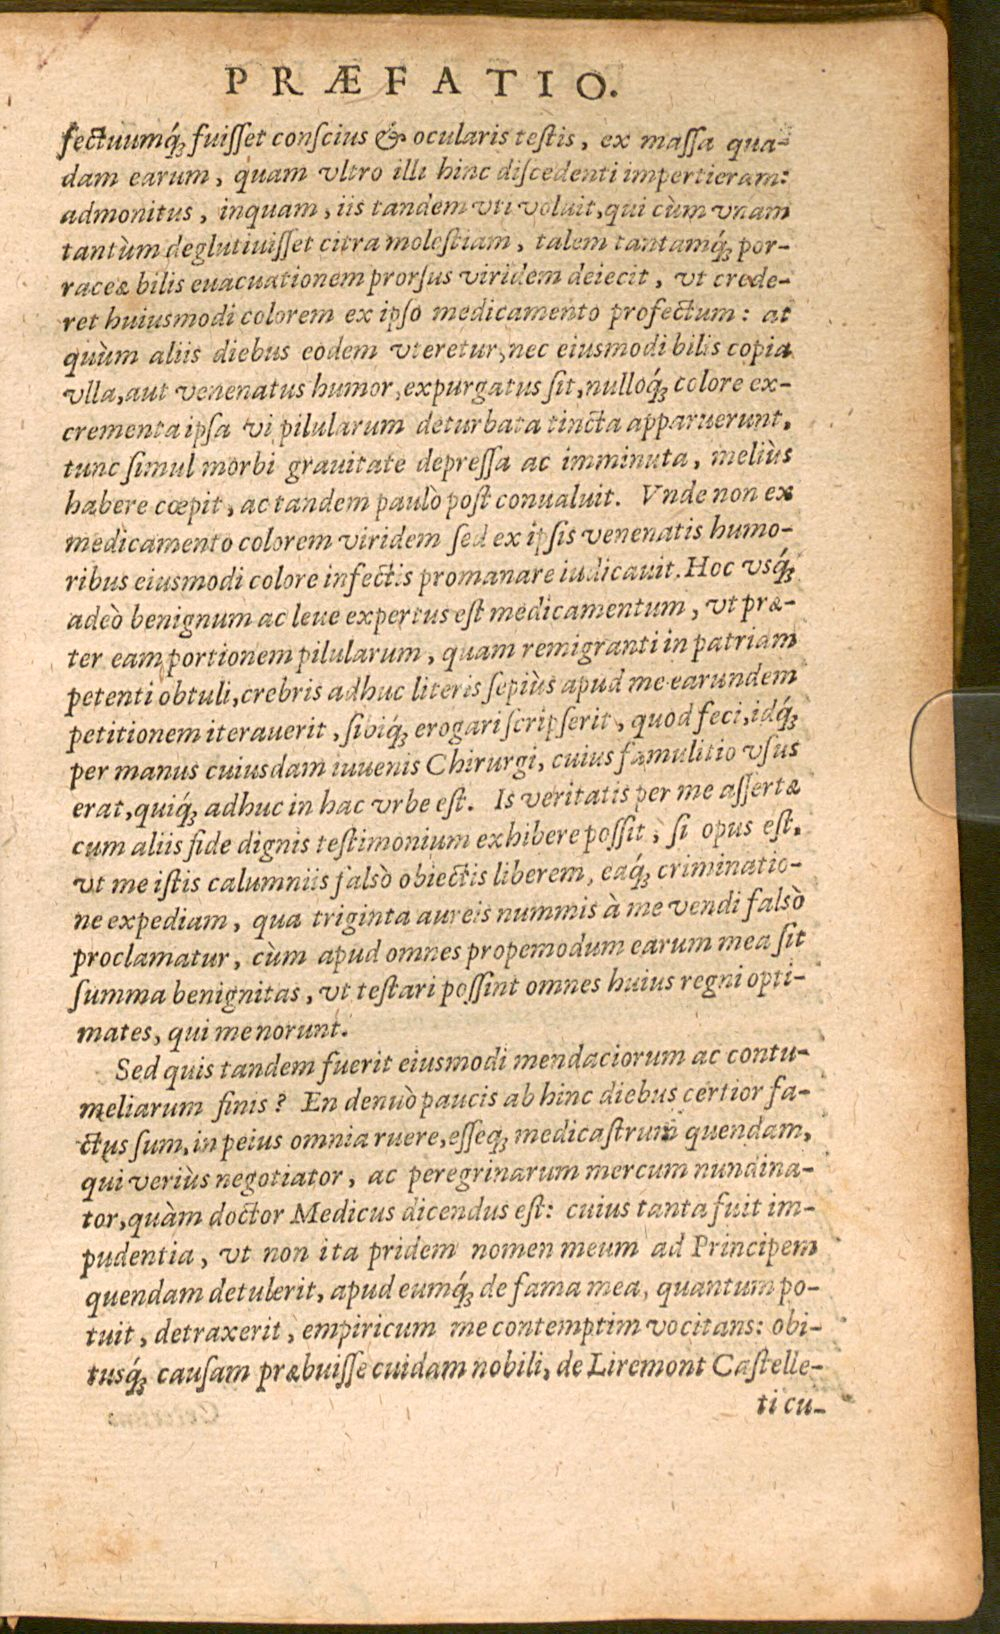 PRÆFATIO.
fectuumq́ꝫ fuiſſet conſcius & ocularis teſtis, ex maſſa qua-
dam earum, quam vltro illi hinc diſcedenti impertieram:
admonitus, inquam, iis tandem vti voluit, qui cùm vnam
tantùm deglutiuiſſet citra moleſtiam, talem tantamq́ꝫ por-
raceæ bilis euacuationem prorſus viridem deiecit, vt crede-
ret huiusmodi colorem ex ipſo medicamento profectum: at
quùm aliis diebus eodem vteretur, nec eiusmodi bilis copia
vlla, aut venenatus humor, expurgatus ſit, nulloq́ꝫ colore ex-
crementa ipſa vi pilularum deturbata tincta apparuerunt,
tunc ſimul morbi grauitate depreſſa ac imminuta, meliùs
habere cœpit, ac tandem paulò poſt conualuit. Vnde non ex
medicamento colorem viridem ſed ex ipſis venenatis humo-
ribus eiusmodi colore infectis promanare iudicauit. Hoc vsq́ꝫ
adeò benignum ac leue expertus eſt medicamentum, vt præ-
ter eam portionem pilularum, quam remigranti in patriam
petenti obtuli, crebris adhuc literis ſepiùs apud me earundem
petitionem iterauerit, ſibiq́ꝫ erogari ſcripſerit, quod feci, idq́ꝫ
per manus cuiusdam iuuenis Chirurgi, cuius famulitio vſus
erat, quiq́ꝫ adhuc in hac vrbe eſt. Is veritatis per me aſſertæ
cum aliis fide dignis teſtimonium exhibere poſſit, ſi opus eſt,
vt me iſtis calumniis falsò obiectis liberem, eaq́ꝫ criminatio-
ne expediam, qua triginta aureis nummis à me vendi falsò
proclamatur, cùm apud omnes propemodum earum mea ſit
ſumma benignitas, vt teſtari poſſint omnes huius regni opti-
mates, qui me norunt.
Sed quis tandem fuerit eiusmodi mendaciorum ac contu-
meliarum finis? En denuò paucis ab hinc diebus certior fa-
ctus ſum, in peius omnia ruere, eſſeqꝫ medicaſtrum quendam,
qui veriùs negotiator, ac peregrinarum mercum nundina-
tor, quàm doctor Medicus dicendus eſt: cuius tanta fuit im-
pudentia, vt non ita pridem nomen meum ad Principem
quendam detulerit, apud eumq́ꝫ de fama mea, quantum po-
tuit, detraxerit, empiricum me contemptim vocitans: obi-
tusq́ꝫ cauſam præbuiſſe cuidam nobili, de Liremont Caſtelle-
ti cu-